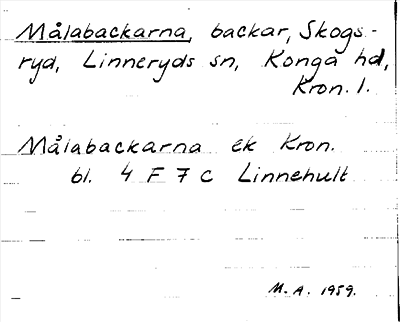 Målabackarna, backar, Skogs-
ryd, Linneryds sn, Konga hd,
Kron. l.
Målabackarna ek Kron.
bl. 4 F 7 c Linnehult
M. A. 1959.